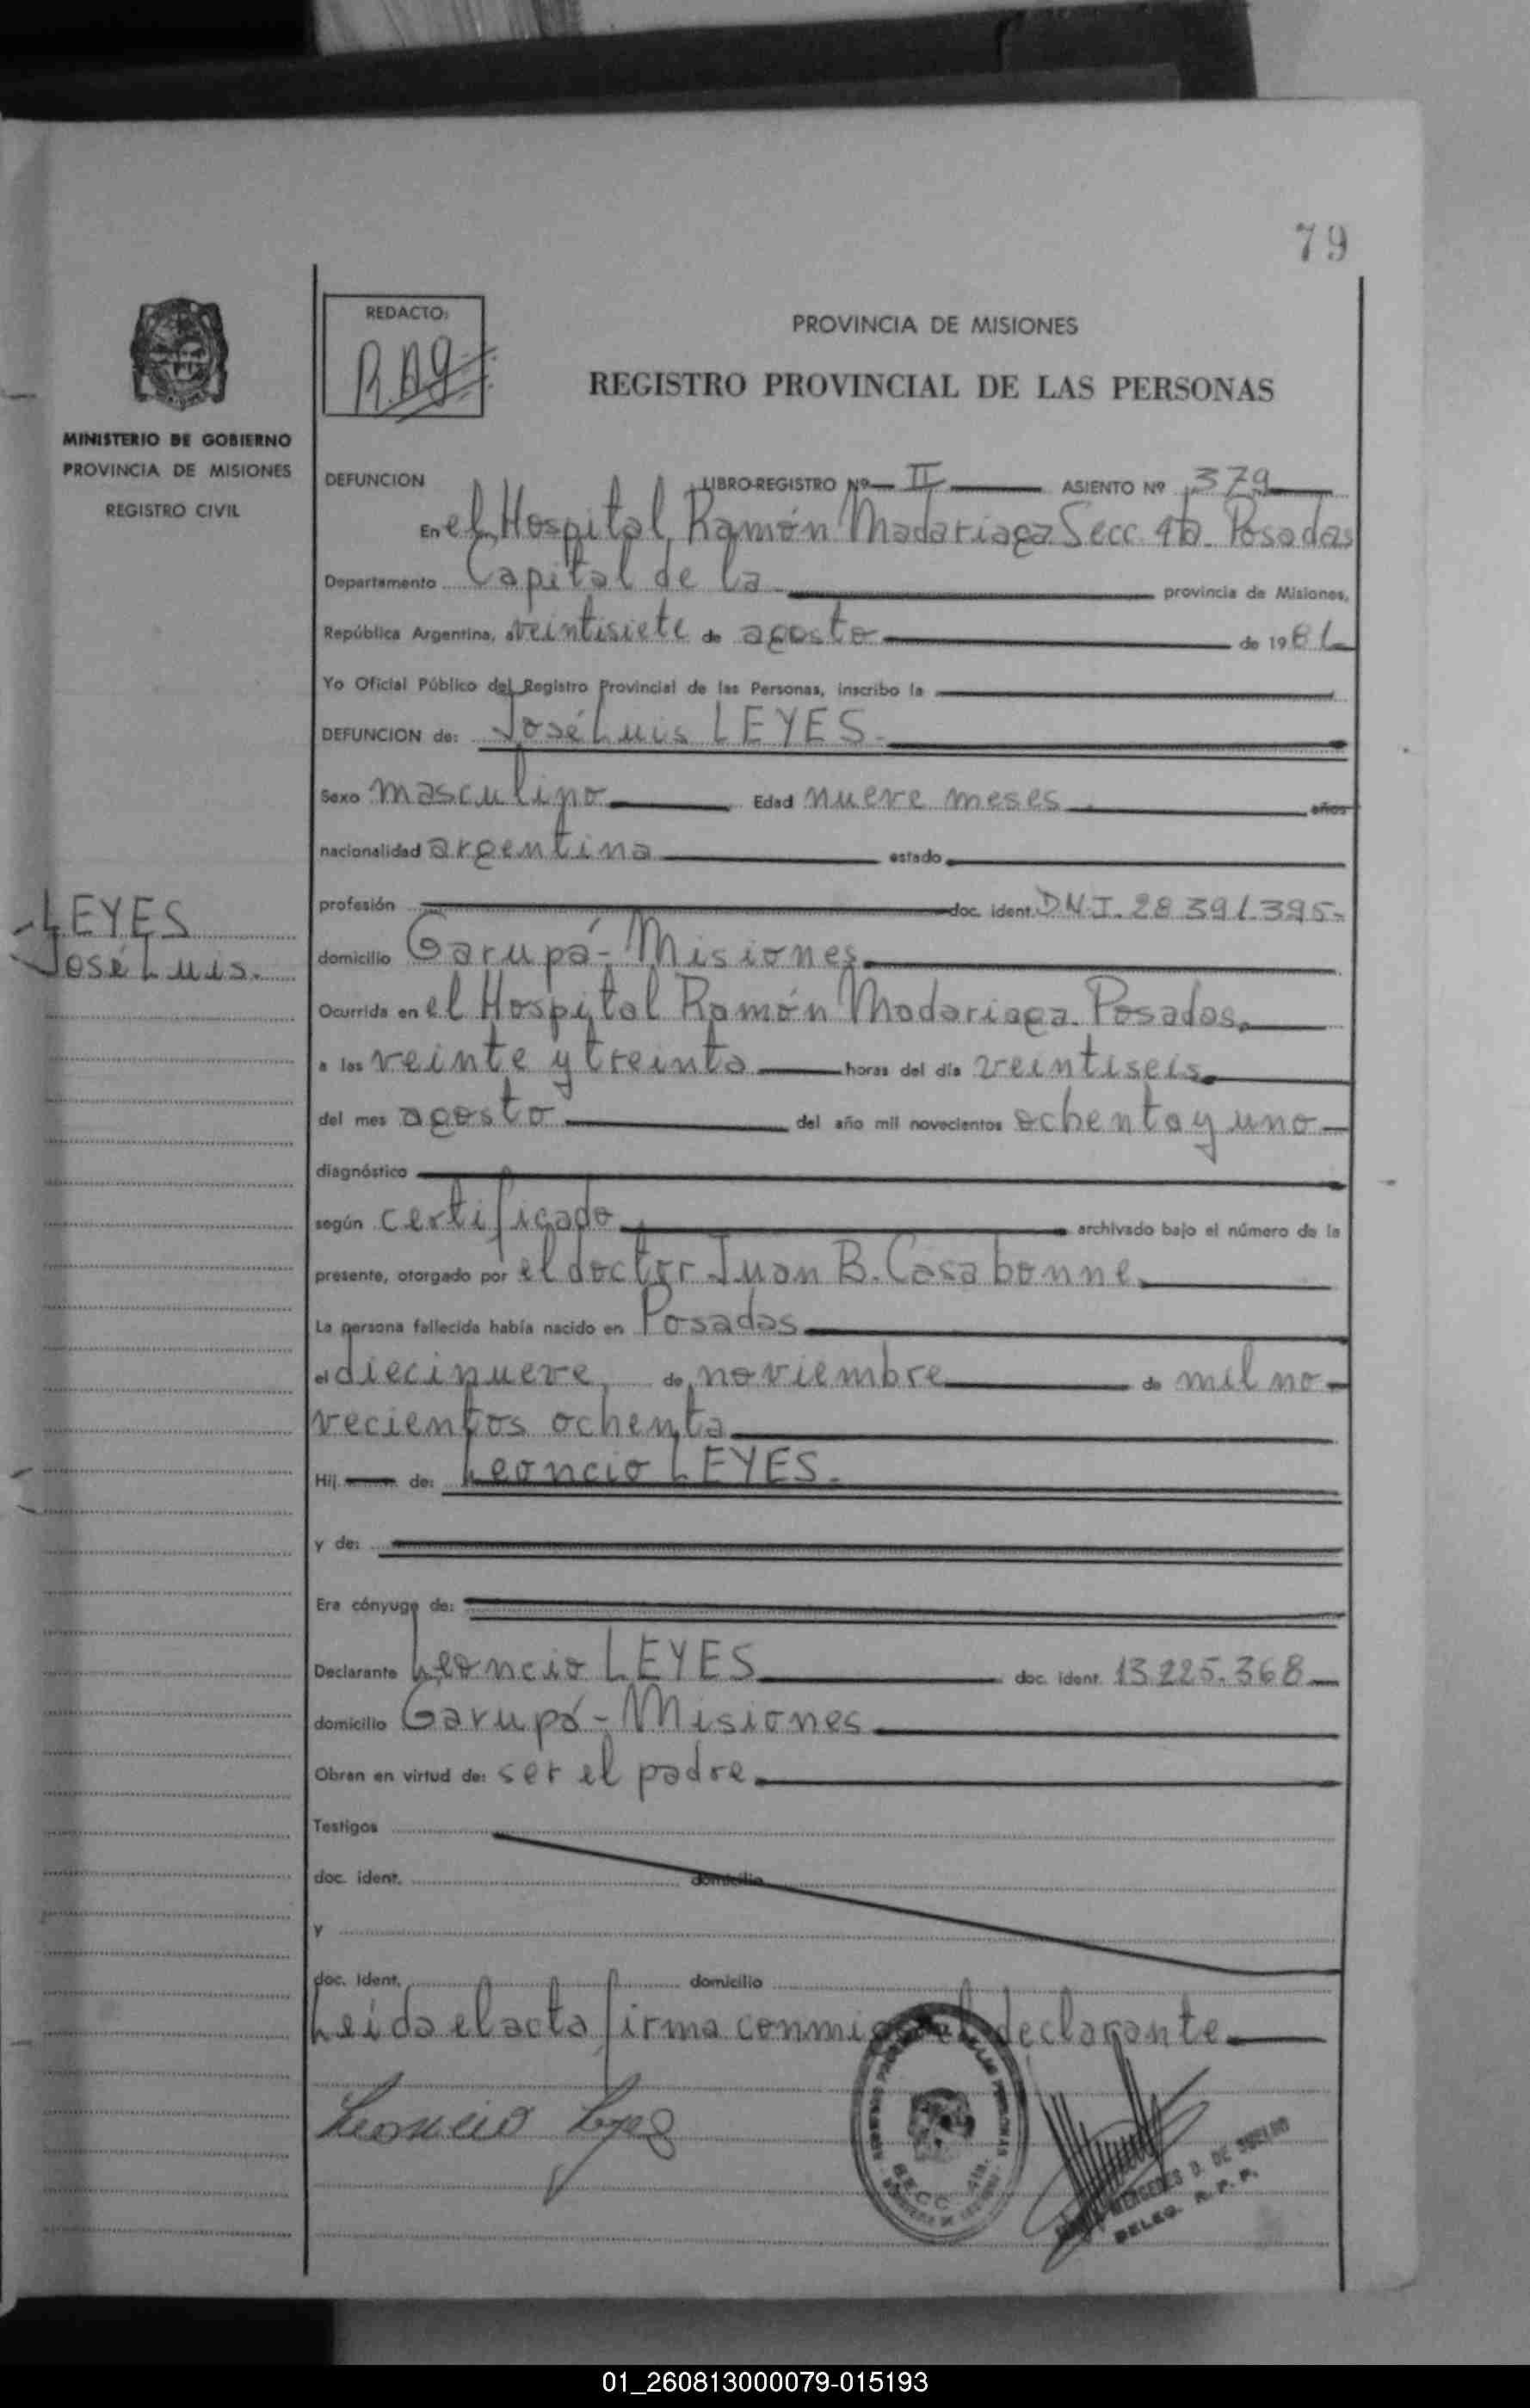 79
REDACTO:
PROVINCIA DE MISIONES
REGISTRO PROVINCIAL DE LAS PERSONAS
MINISTERIO DE GOBIERNO
PROVINCIA DE MISIONES
REGISTRO CIVIL
LEYES
José Luis.
DEFUNCION LIBRO-REGISTRO Nº II ASIENTO Nº 379
En el Hospital Ramón Madariaga Secc. 4ta. Posadas
Departamento Capital de la provincia de Misiones,
República Argentina, a veintisiete de agosto de 1981
Yo Oficial Público del Registro Provincial de las Personas, inscribo la
DEFUNCION de: José Luis LEYES.
Sexo masculino Edad nueve meses años
nacionalidad argentina estado
profesión doc. ident. D.N.I. 28.391.395-
domicilio Garupá - Misiones
Ocurrida en el Hospital Ramón Madariaga. Posadas
a las veinte y treinta horas del día veintiseis
del mes agosto del año mil novecientos ochenta y uno
diagnóstico
según certificado archivado bajo el número de la
presente, otorgado por el doctor Juan B. Casabonne
La persona fallecida había nacido en Posadas
el diecinueve de noviembre de mil no-
vecientos ochenta
Hij de: Leoncio LEYES.
y de:
Era cónyuge de:
Declarante Leoncio LEYES doc. ident. 13.225.368
domicilio Garupá - Misiones
Obran en virtud de: ser el padre
Testigos
doc. ident. domicilio
y
doc. ident. domicilio
Leída el acta firma conmigo el declarante
Leoncio
SECC. 4ta.
MERCEDES D. DE
DELEG. R. P. P.
01_260813000079-015193